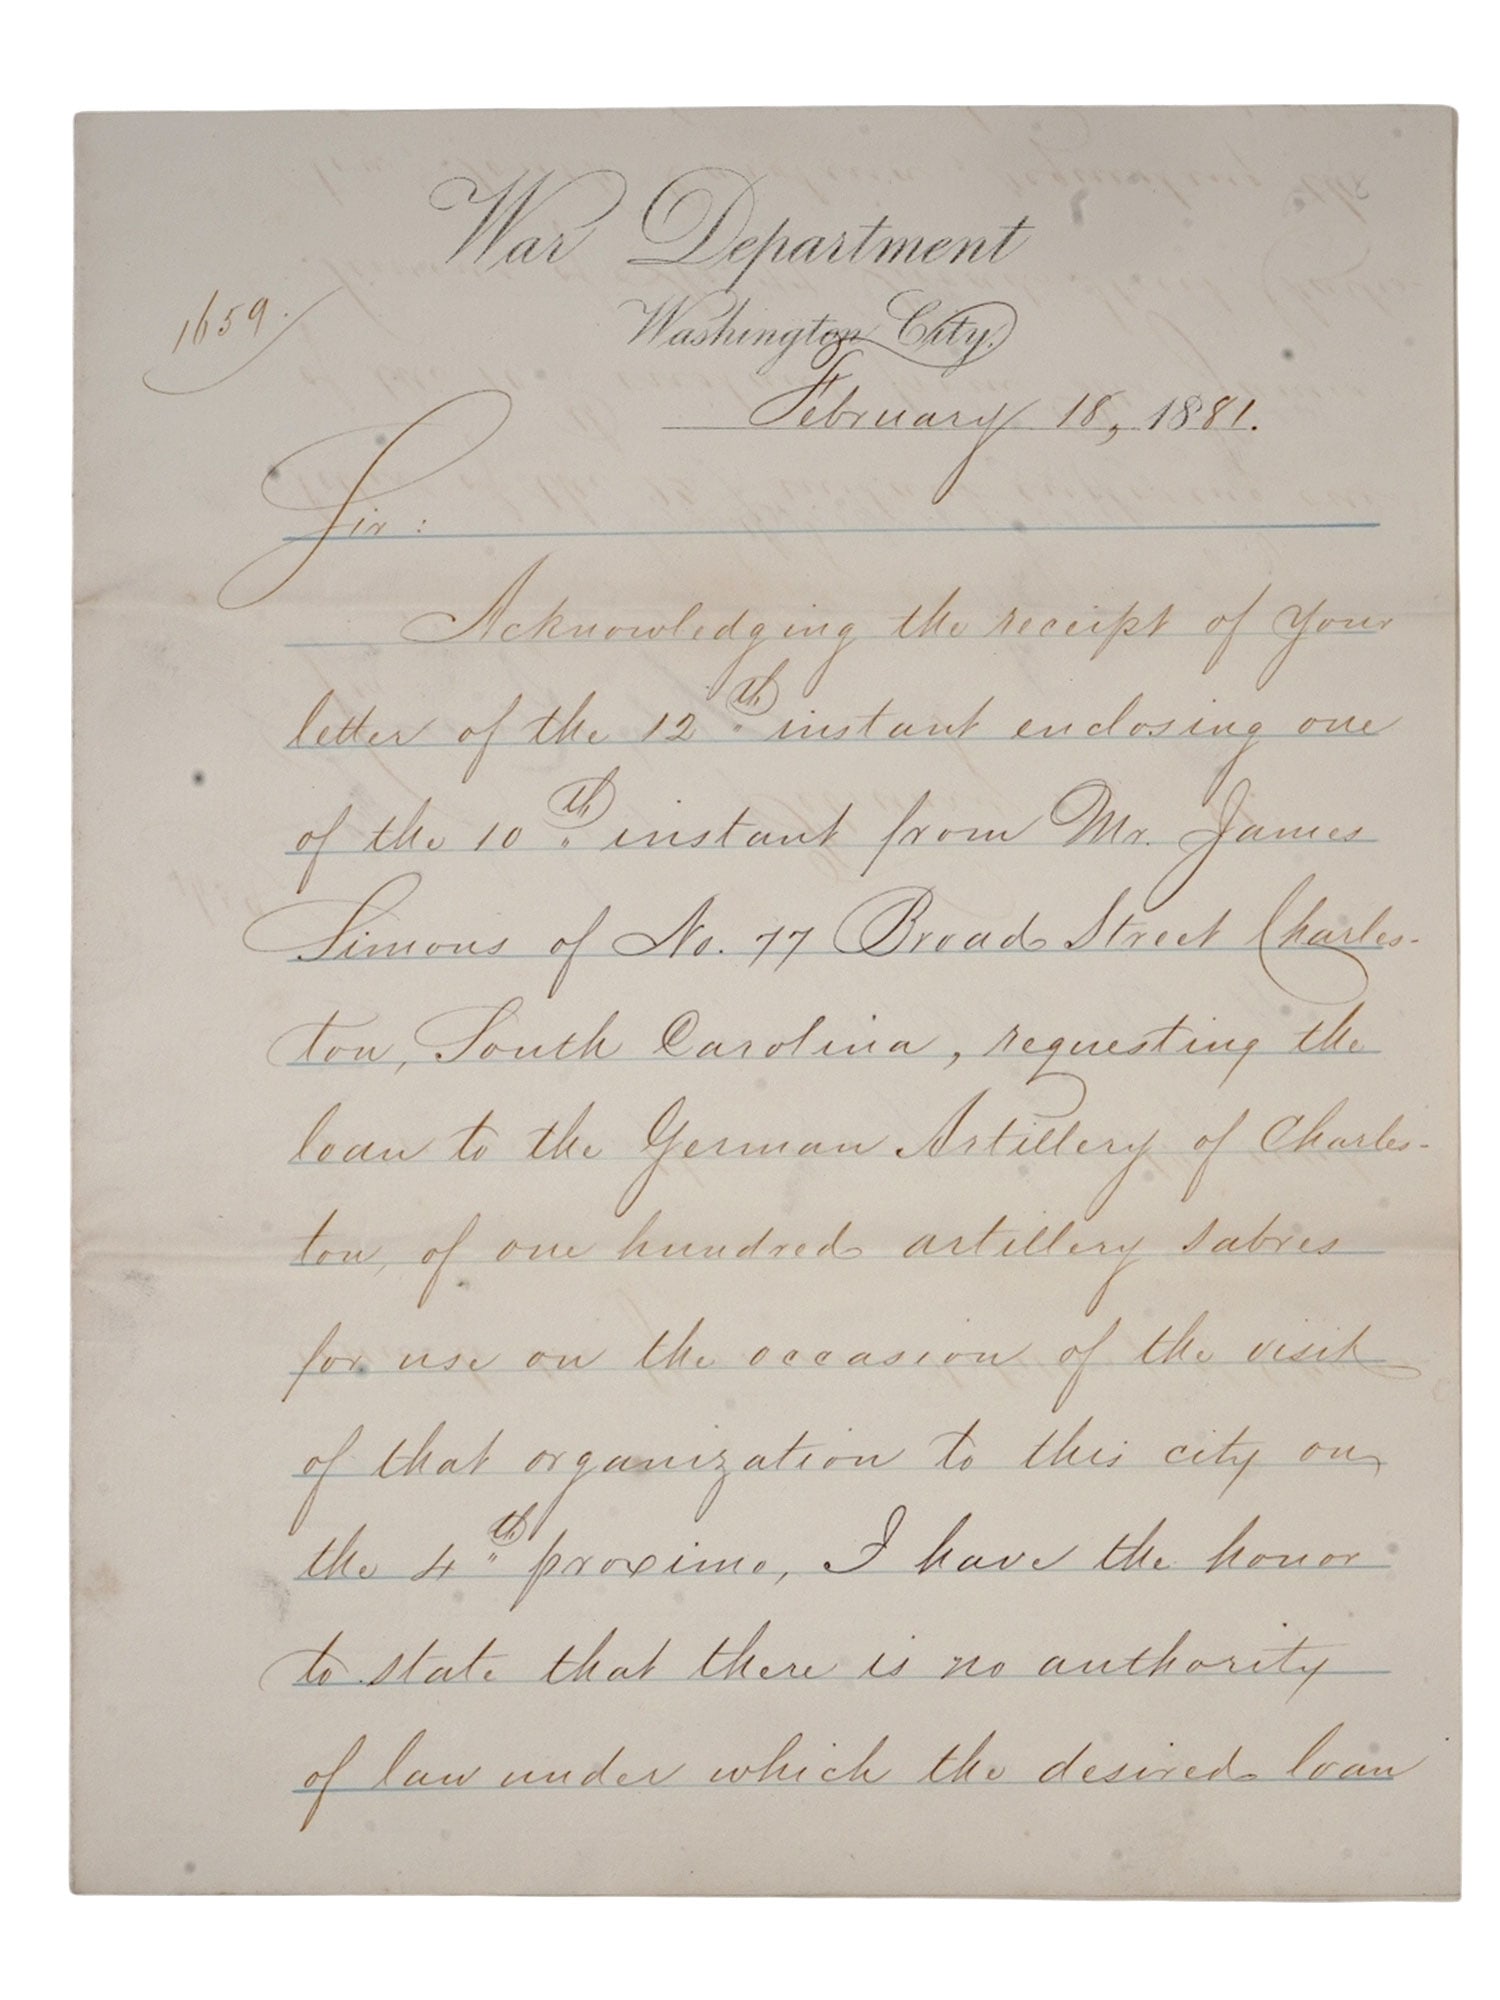 War Department
Washington City.
1659.
February 18, 1881.
Sir:
Acknowledging the receipt of your
letter of the 12th instant enclosing one
of the 10th instant from Mr. James
Simons of No. 77 Broad Street Charles-
ton, South Carolina, requesting the
loan to the German Artillery of Charles-
ton, of one hundred artillery sabres
for use on the occasion of the visit
of that organization to this city on
the 4th proximo, I have the honor
to state that there is no authority
of law under which the desired loan